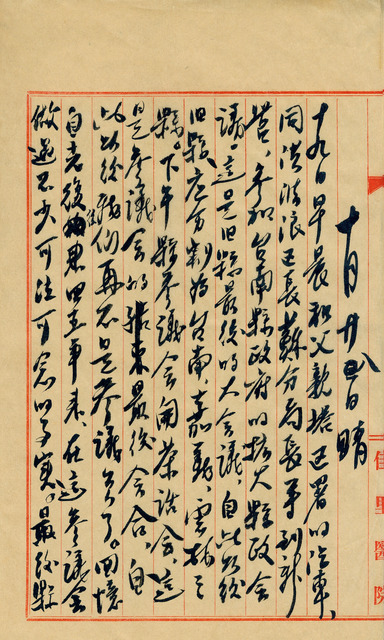 十月廿四日 晴
十九日早晨祖父歡搭區署的汽車、
同洪海浪區長蘇分局長等到新
營、參加台南縣政府的擴大縣政會
議。這是旧縣最後的大會議、自此以後
旧縣庄分割為台南、嘉義、雲林三
縣。下午縣參議會開茶話會、這
是參議會的結束最後會合、自
此以後我們再不是參議員了。回憶
自光復後思回五年來、在這參議會
做過不少可法可念的事實。最後縣
佳里醫院